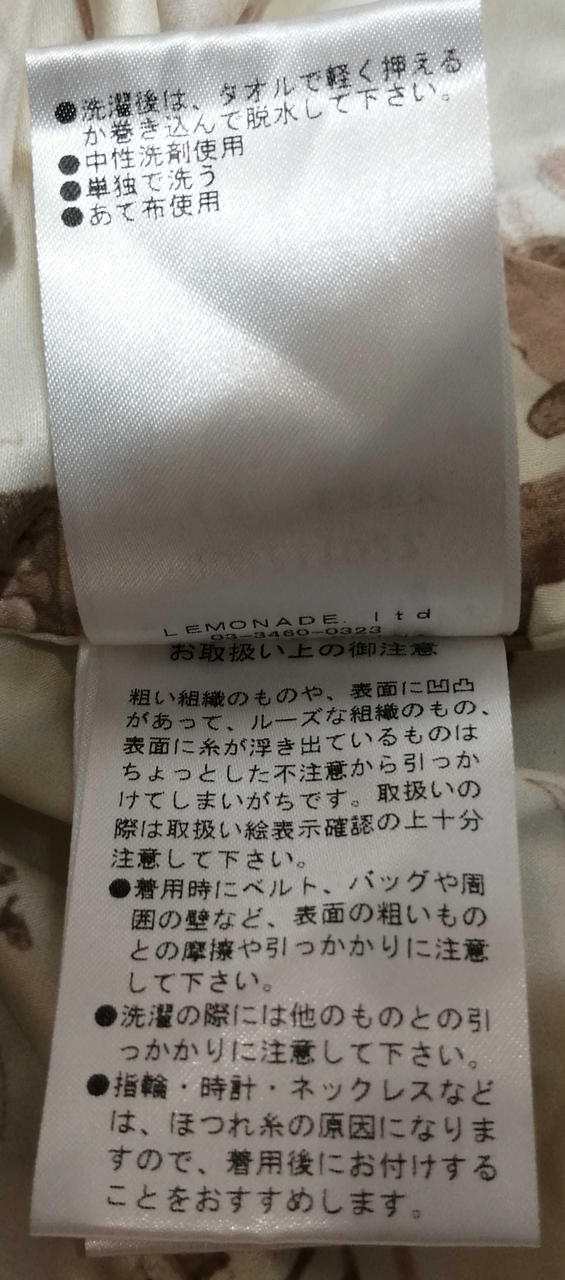 ●洗濯後は、タオルで軽く押える
か巻き込んで脱水して下さい。
●中性洗剤使用
●単独で洗う
●あて布使用
LEMONADE. ltd
03-3460-0323
お取扱い上の御注意
粗い組織のものや、表面に凹凸
があって、ルーズな組織のもの、
表面に糸が浮き出ているものは
ちょっとした不注意から引っか
けてしまいがちです。取扱いの
際は取扱い絵表示確認の上十分
注意して下さい。
●着用時にベルト、バッグや周
囲の壁など、表面の粗いもの
との摩擦や引っかかりに注意
して下さい。
●洗濯の際には他のものとの引
っかかりに注意して下さい。
●指輪・時計・ネックレスなど
は、ほつれ糸の原因になりま
すので、着用後にお付けする
ことをおすすめします。